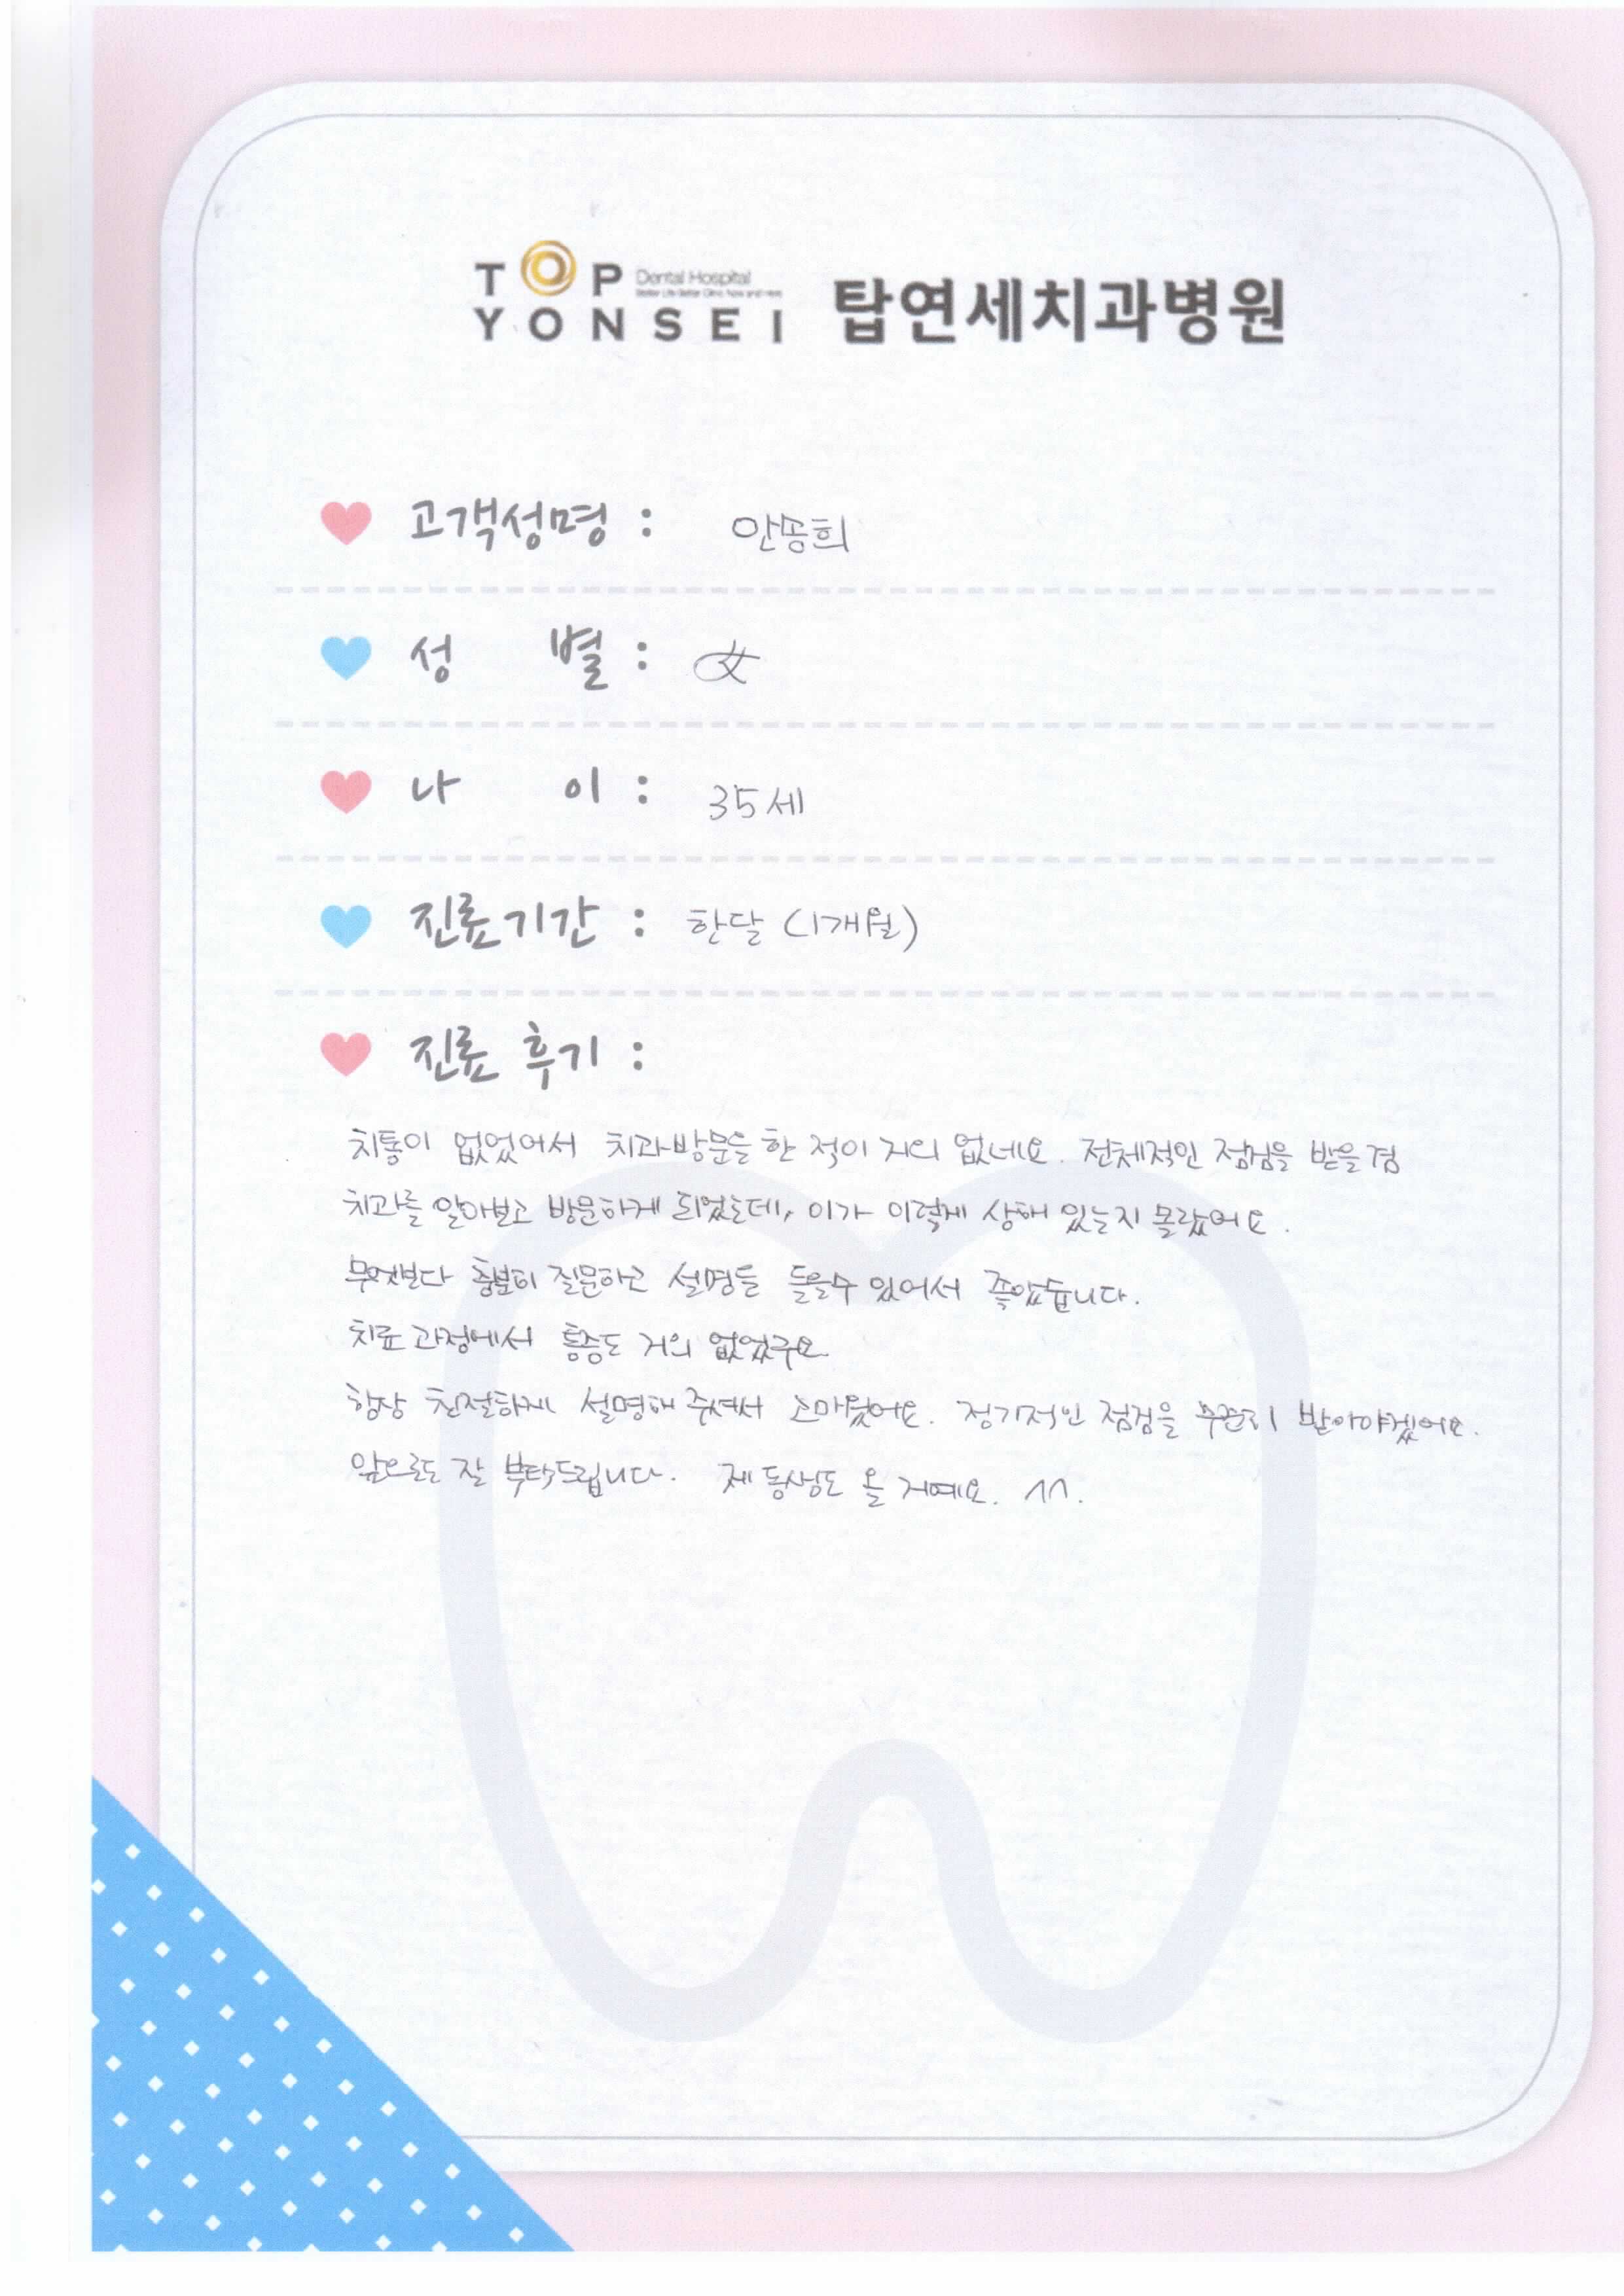 TOP Dental Hospital
YONSEI 탑연세치과병원
고객성명 : 안송희
성 별 : 女
나 이 : 35세
진료기간 : 한달 (1개월)
진료 후기 :
치통이 없었어서 치과방문을 한 적이 거의 없네요. 전체적인 점검을 받을겸
치과를 알아보고 방문하게 되었는데, 이가 이렇게 상해 있는지 몰랐어요.
무엇보다 충분히 질문하고 설명을 들을수 있어서 좋았습니다.
치료 과정에서 통증도 거의 없었구요.
항상 친절하게 설명해 주셔서 고마웠어요. 정기적인 점검을 꾸준히 받아야겠어요.
앞으로도 잘 부탁드립니다. 제 동생도 올 거예요. ^^.